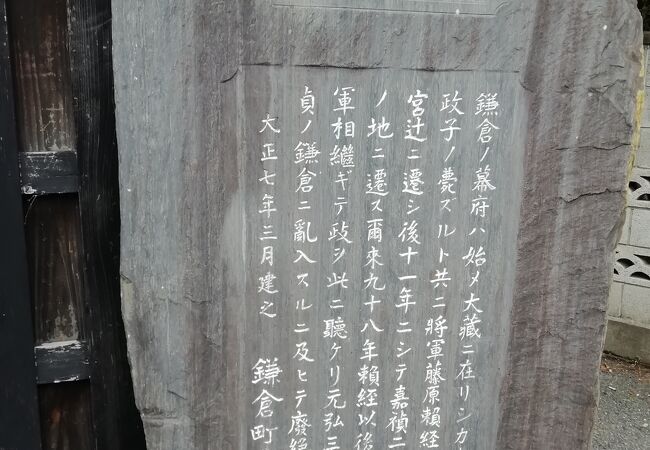 鎌倉ノ幕府ハ始メ大藏ニ在リシカ
政子ノ薨ズルト共ニ將軍藤原賴經
宮辻ニ遷シ後十一年ニシテ嘉禎二
ノ地ニ遷ス爾來九十八年賴經以後
軍相繼ギテ政ヲ此ニ聽ケリ元弘三
貞ノ鎌倉ニ亂入スルニ及ヒテ廢絶
大正七年三月建之 鎌倉町